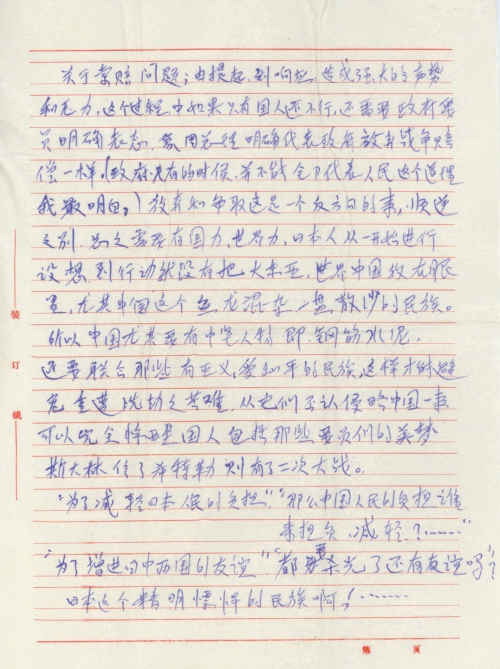 关于索赔问题；由提起，到响应，造成强大的声势
和压力，这个过程中如果只有国人还不行，还需要政府要
员明确表态，象周总理明确代表政府放弃战争赔
偿一样。(政府是有的时候，并不能全部代表人民这个道理
我最明白，)放弃和争取这是一个反方向的事，顺逆
之别 总之需要有国力，世界力，日本人从一开始进行
设想，到行动就没有把大东亚，世界中国放在眼
里，尤其中国这个鱼龙混杂，一盘散沙的民族。
所以中国尤其要有中坚人物 即：钢筋水泥，
还要联合那些有正义，爱和平的民族，这样才能避
免重遭洗劫之苦难，从他们否认侵略中国一事
可以完全 国人包括那些要员们的美梦
斯大林信了希特勒则有了二次大战。
“为了减轻日本人民的负担” “那么中国人民的负担谁
来担负，减轻？……”
“为了增进日中两国的友谊” “都要杀光了还有友谊吗”？
日本这个精明慓悍的民族啊！……
装
订
线
第 页